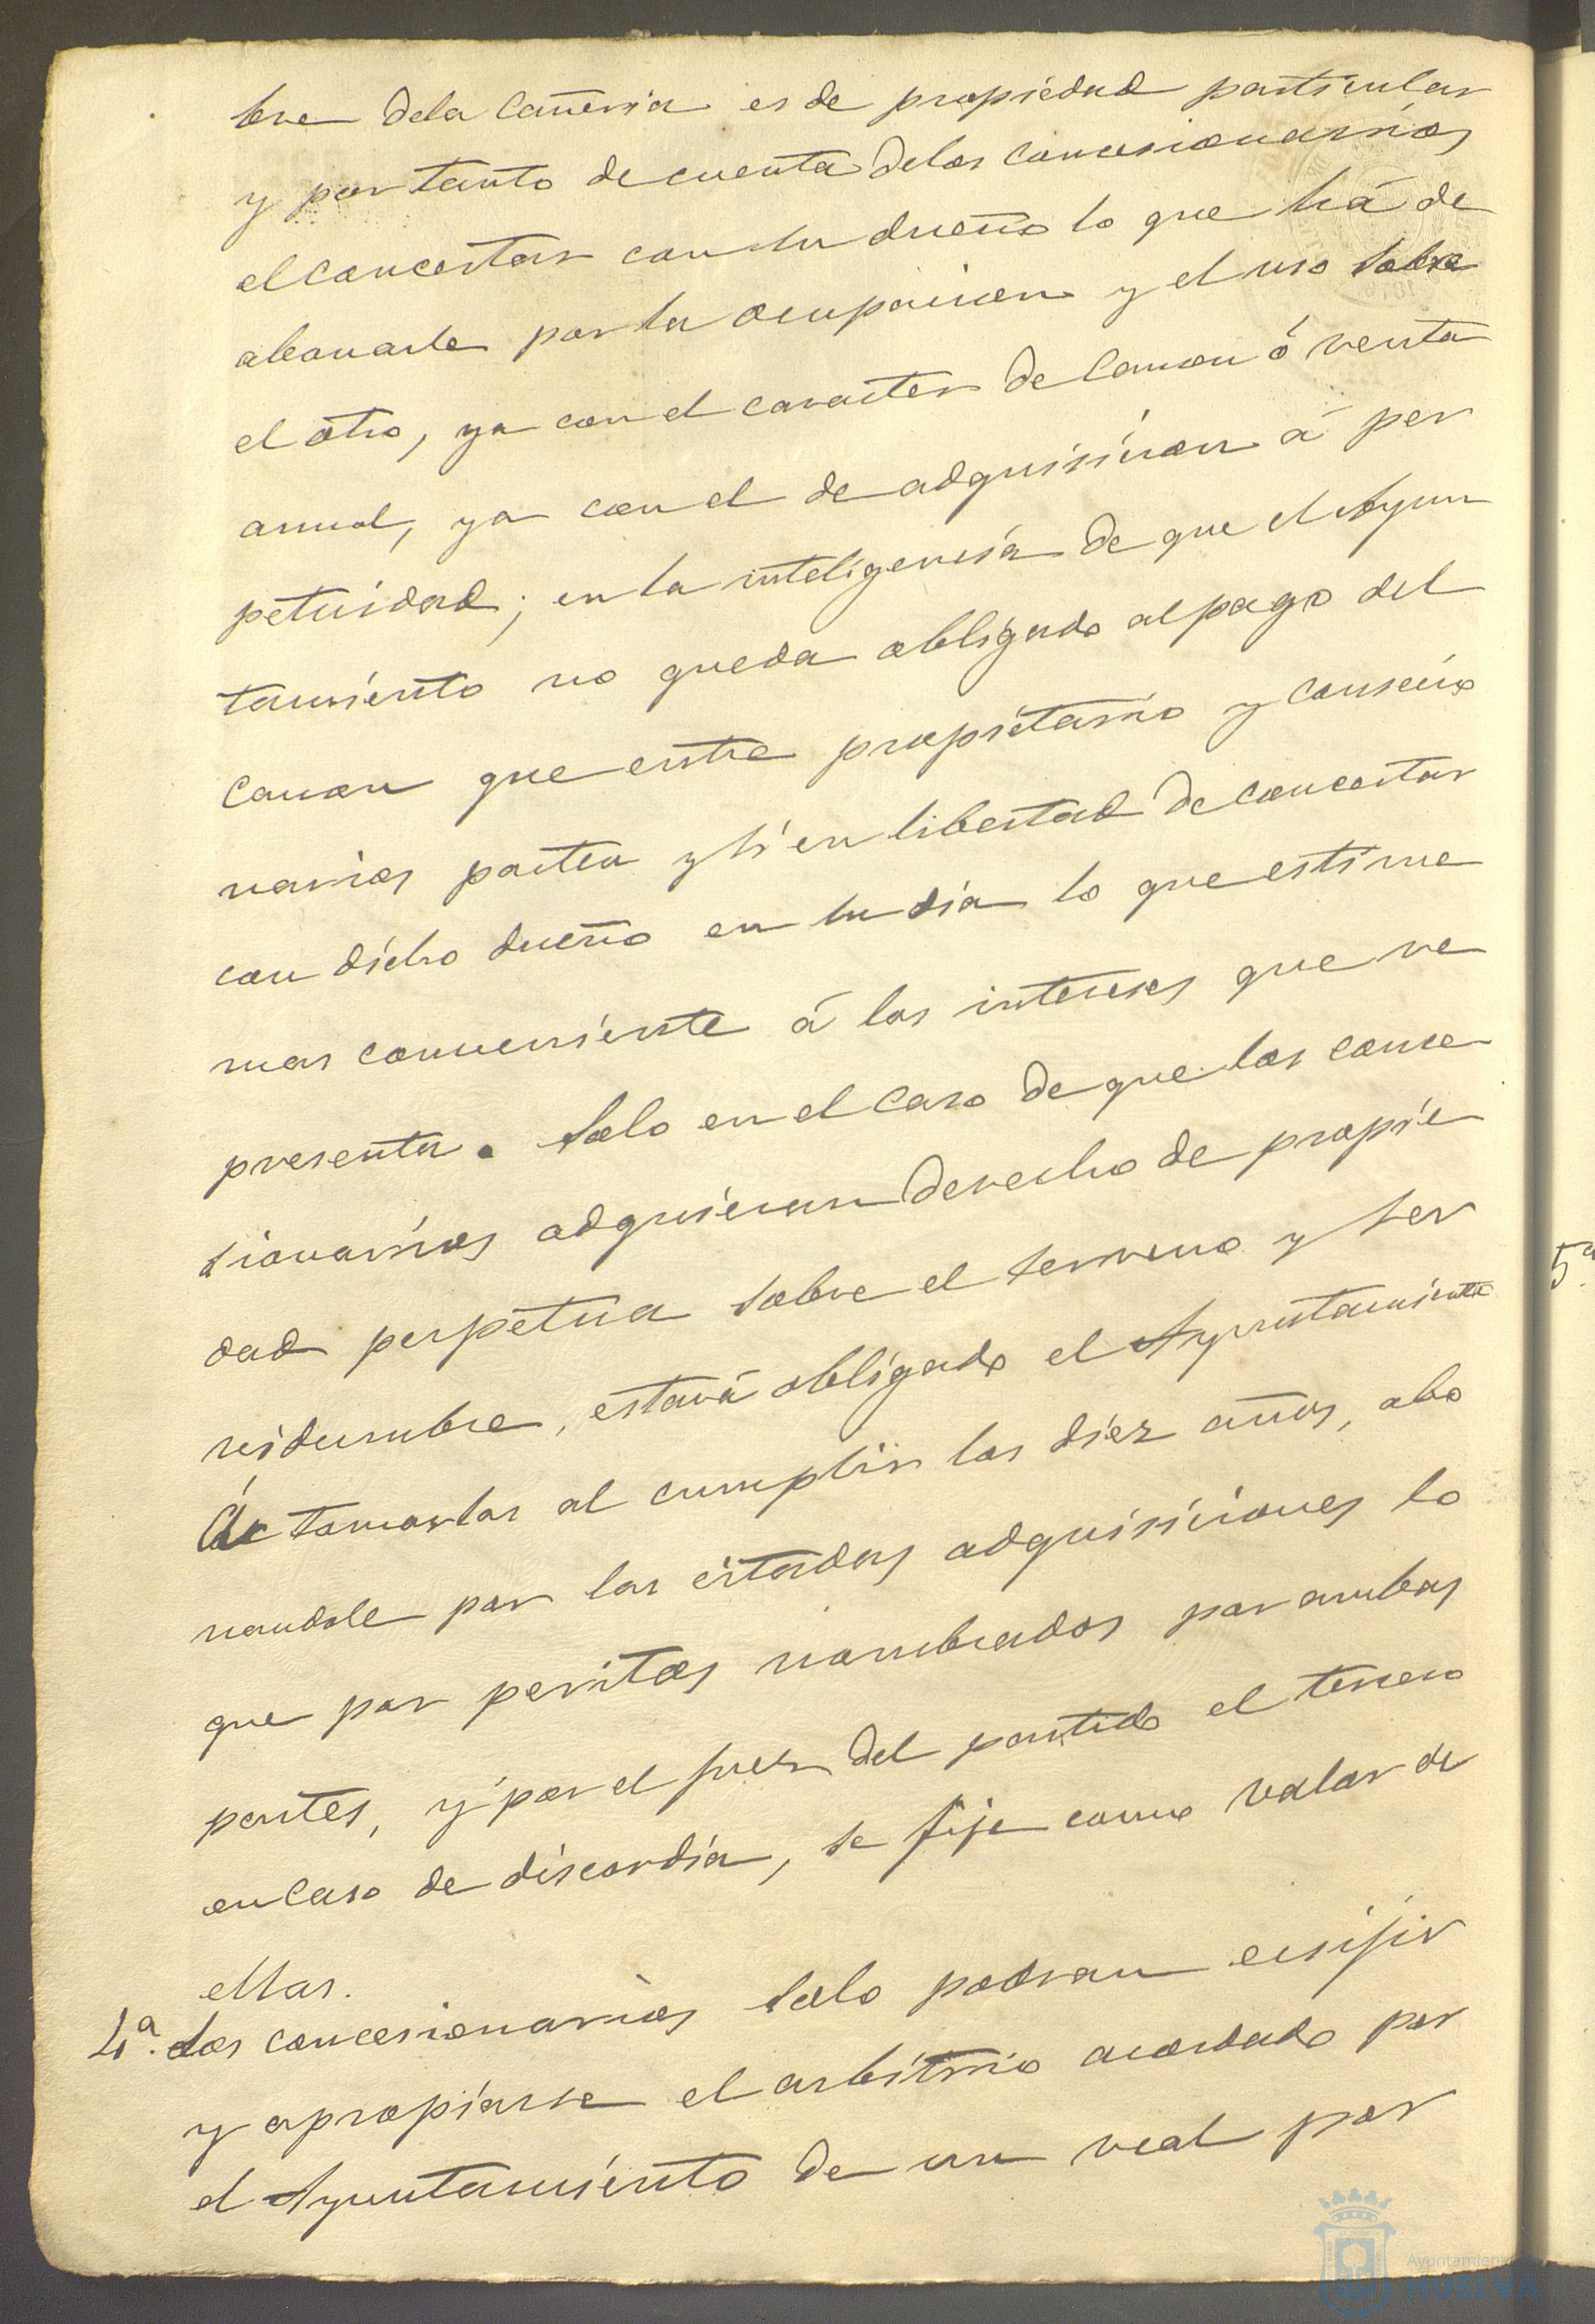 bre dela Cañeria es de propiedad particular
y por tanto de cuenta delos concesionarios
el concertar con su dueño lo que há de
abonarle por la ocupacion y el uso sobre
el otro, ya con el caracter de Canon ó renta
anual, ya con el de adquisicion á per
petuidad; en la inteligencia de que el Ayun
tamiento no queda obligado al pago del
Canon que entre propietario y concecio
narios pacten y si en libertad de concertar
con dicho dueño en su dia lo que estime
mas conveniente á los intereses que re
presenta. Solo en el caso de que los conce
sionarios adquieran derecho de propie
dad perpetua sobre el terreno y ser
vidumbre, estará obligado el Ayuntamiento
á tomarlas al cumplir los diez años, abo
nandole por las citadas adquisiciones lo
que por peritos nombrados por ambas
partes, y por el Juez del partido el tercero
en Caso de discordia, se fije como valor de
ellas.
4ª. Los concesionarios solo podran ecsijir
y apropiarse el arbitrio acordado por
el Ayuntamiento de un real por
5ª
Ayuntamien
HUELVA